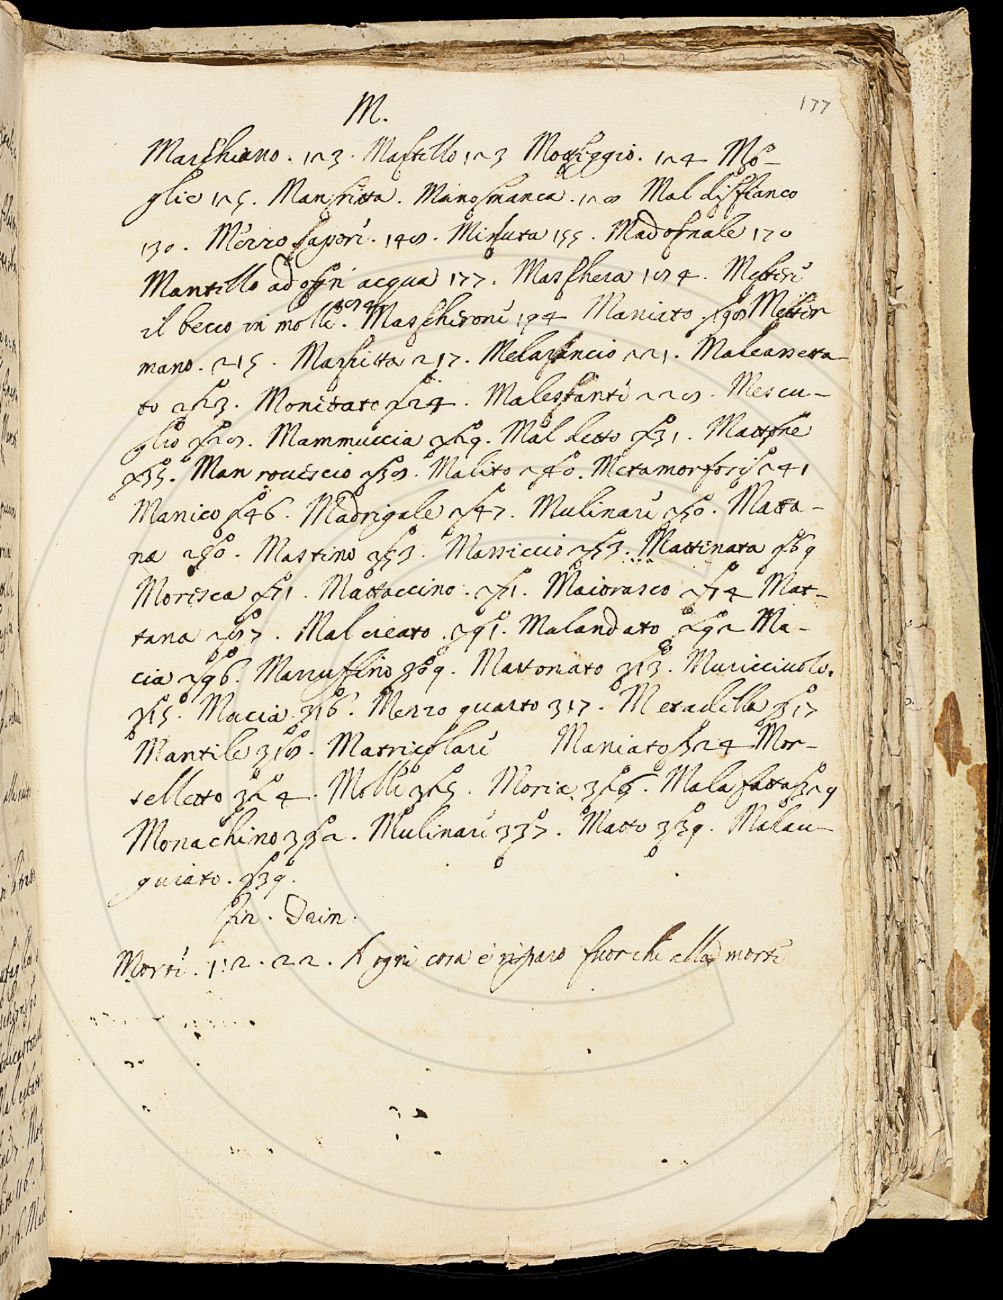 M.
177
Maschiano. 123. Mastillo 123 Motteggio. 124 Mo-
glie 125. Manritta. Mano manca. 128 Mal di fianco
130. Mezzo sapori. 148. Misura 155. Mad ornale 170
Mantello ad ogn' acqua 177. Maschera 184. Metteri
il becco in molle. Mascheroni 194 Maniato 208 Metter
mano. 215. Marfitta 217. Melarancio 221. Malcassetta-
to 223. Monitato 224. Malestanti 228. Mescu-
glio 228. Mammuccia 229. Mal detto 231. Mattone
235. Man rovescio 238. Malito 240. Metamorfosi 241
Manico 246. Madrigale 247. Mulinari 250. Matta-
na 250. Mastino 253. Massiccio 253. Mattinata 269
Moresca 271. Mattaccino. 271. Maiorasco 274 Mat-
tana 287. Mal creato. 291. Malandato 292 Ma-
cia 296. Marruffino 309. Mattonato 313. Muricciuolo.
315. Macia 316. Mezzo quarto 317. Metadella 317
Mantile 318. Matricolari Maniato 324 Mor-
telletto 324. Molle 325. Moria 326. Mala fatta 329
Monachino 332. Mulinari 337. Matto 339. Malau-
guiato. 239.
Morti. 1:2. 22. A ogni cosa è riparo fuorchè alla morte